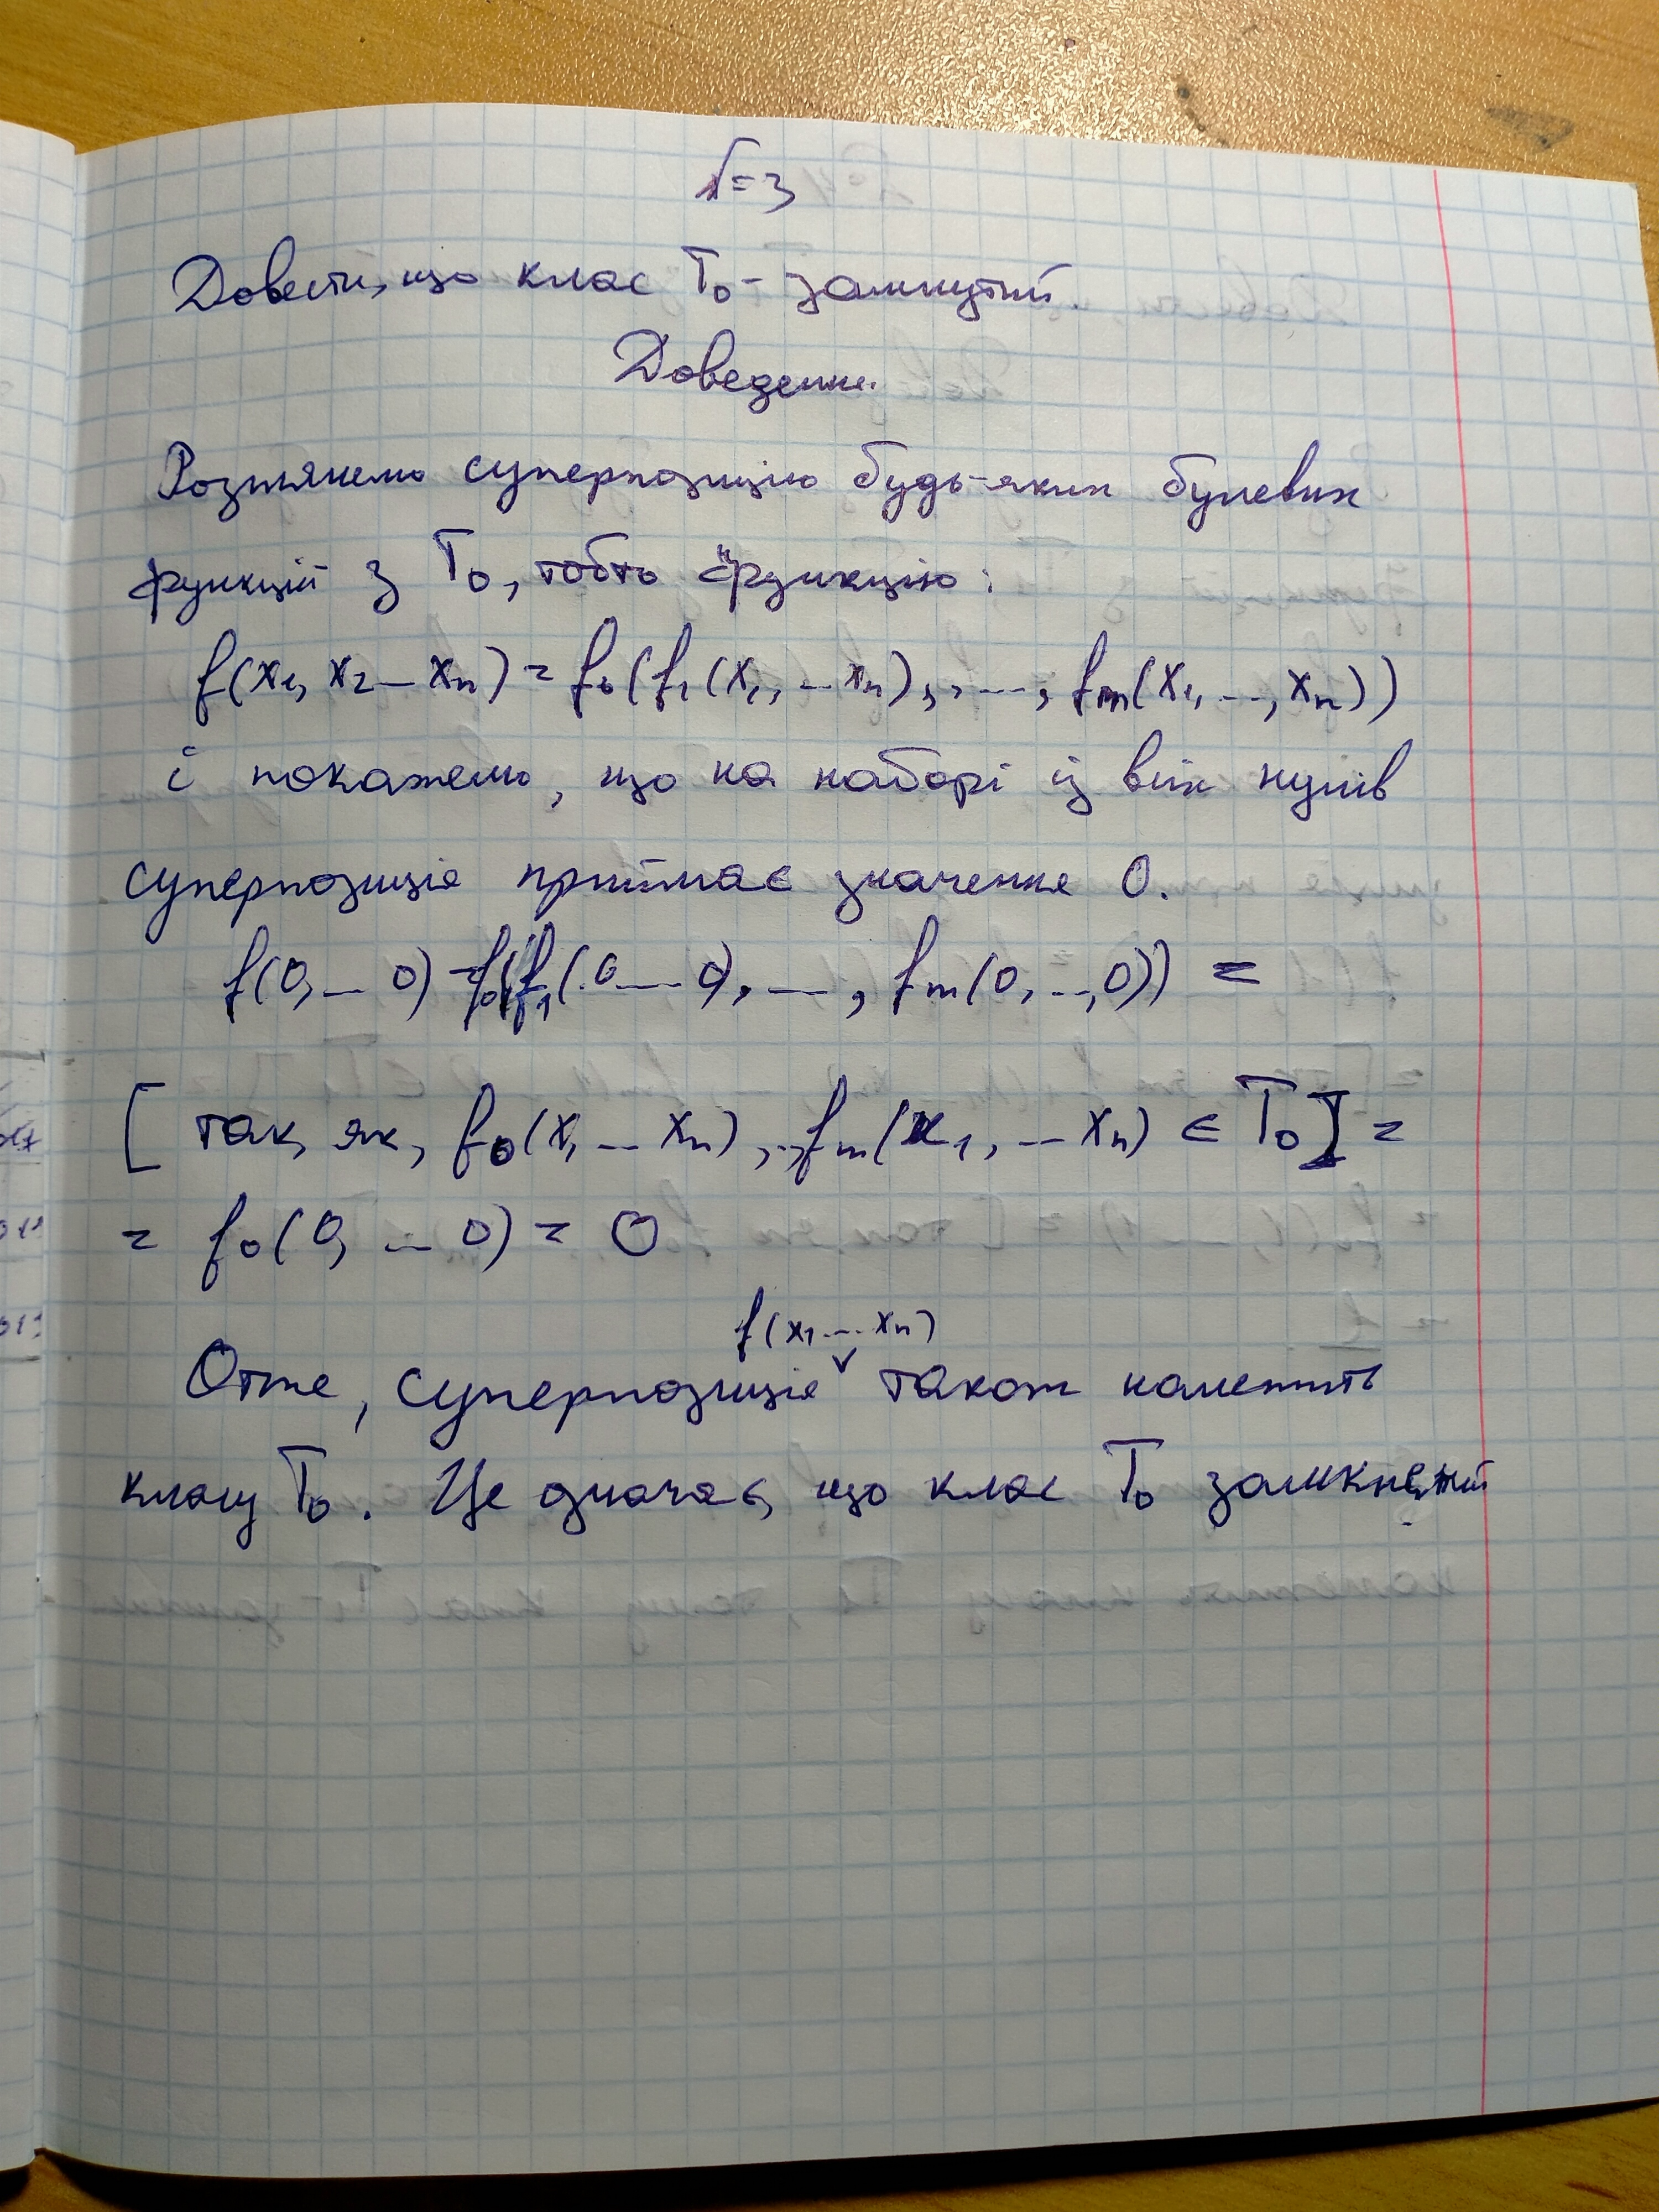 №3
Довести, що клас T₀ - замкнутий.
Доведення.
Розглянемо суперпозицію будь-яких булевих
функцій з T₀, тобто функцію:
f(x₁, x₂ ... xₙ) = f₀(f₁(x₁, ... xₙ), , ..., fₘ(x₁, ..., xₙ))
і покажемо, що на наборі із всіх нулів
суперпозиція приймає значення 0.
f(0, ... 0) = f₀(f₁(0 ... 0), ..., fₘ(0, ..., 0)) =
[ так, як, f₀(x, ... xₙ), .., fₘ(x₁, ... xₙ) ∈ T₀] =
= f₀(0, ... 0) = 0
f(x₁ ... xₙ)
Отже, суперпозиція ᵛ також належить
класу T₀. Це означає, що клас T₀ замкнений